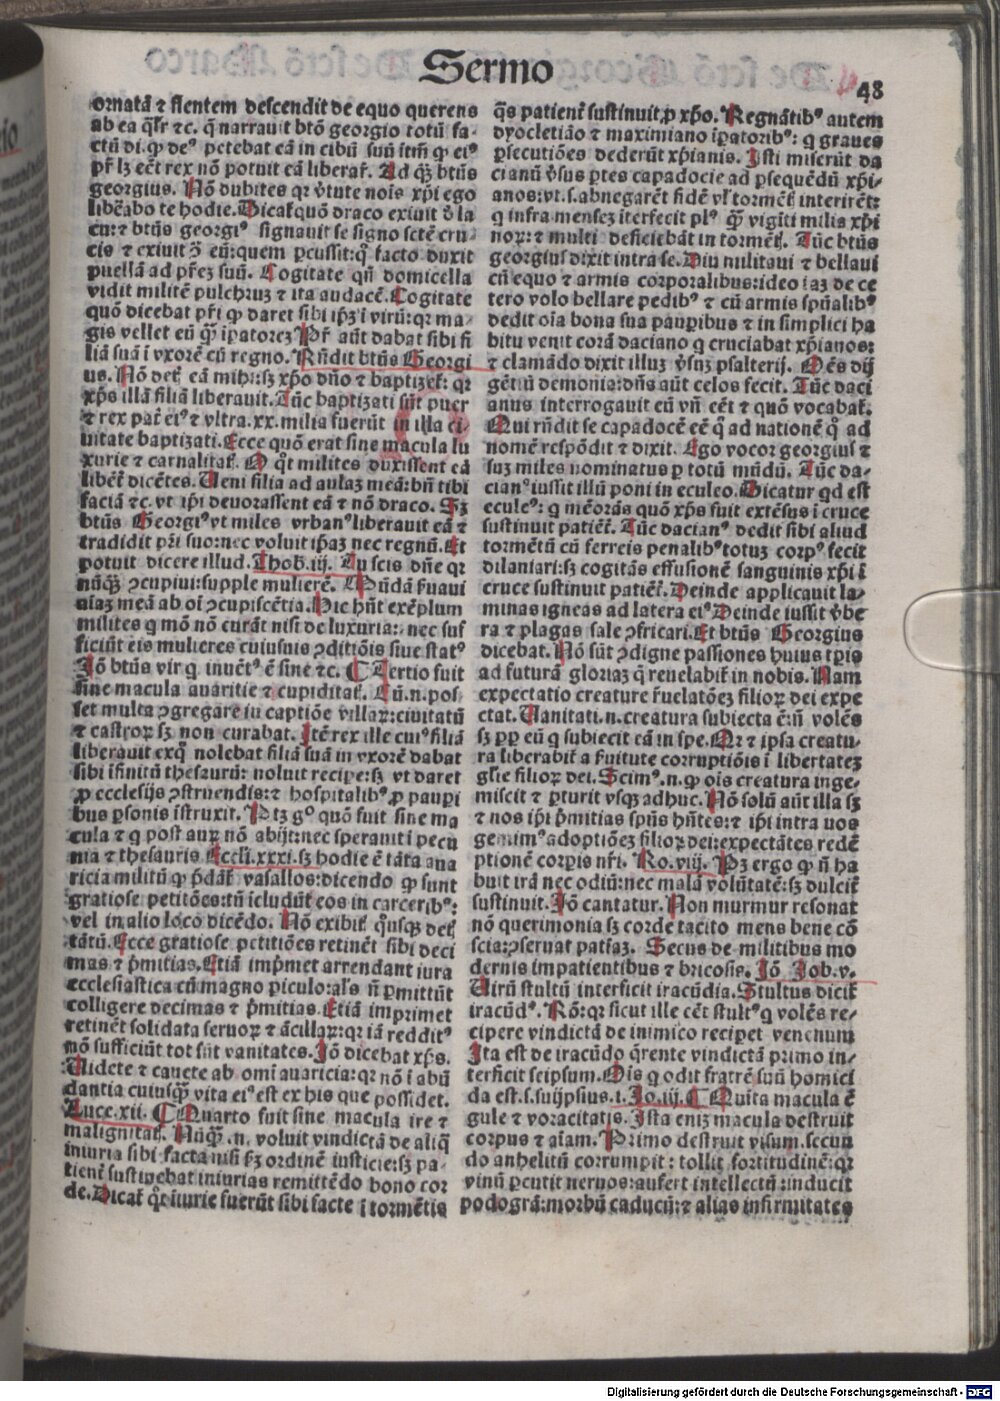 Sermo
48
ornatã ⁊ flentem descendit de equo querens
ab ea q̃lr̃ ⁊c. q̃ narrauit btõ georgio totũ fa-
ctũ di. ꝙ deꝰ petebat eã in cibũ suũ itm̃ ꝙ eiꝰ
pr̃ lꝫ eẽt rex nõ potuit eã liberar̃. Ad qꝫ btũs
georgius. Nõ dubites qr ṽtute nois xp̃i ego
liberabo te hodie. Dicat̃ quõ draco exiuit ð la
cu: ⁊ btũs georgiꝰ signauit se signo sctẽ cru-
cis ⁊ exiuit ɔ̃ eũ: quem ꝑcussit: qͦ facto duxit
puellã ad pr̃eꝫ suũ. Cogitate qñ domicella
vidit militẽ pulchruꝫ ⁊ ita audacẽ. Cogitate
quõ dicebat pr̃i ꝙ daret sibi ip̃ꝫ i virũ: qr ma-
gis vellet eũ q̃ꝫ ip̃atoreꝫ Pr̃ aũt dabat sibi fi
liã suã i vxorẽ cũ regno. Rñdit btũs Georgi
us. Nõ det̃ eã mihi: sꝫ xp̃o dño ⁊ baptizet̃: qr
xp̃s illã filiã liberauit. Tũc baptizati sũt puer
⁊ rex pat̃ eiꝰ ⁊ vltra .xx. milia fuerũt in illa ci-
uitate baptizati. Ecce quõ erat sine macula lu
xurie ⁊ carnalitat̃. O qͦt milites duxissent eã
libẽt̃ dicẽtes. Ueni filia ad aulaꝫ meã: bñ tibi
faciã ⁊c. vt ip̃i deuorassent eã ⁊ nõ draco. Sꝫ
btũs Georgiꝰ vt miles vrbanꝰ liberauit eã ⁊
tradidit pr̃i suo: nec voluit ip̃aꝫ nec regnũ. Et
potuit dicere illud. Thob. iij. Tu scis dñe qr
nũqꝫ ɔcupiui: supple mulierẽ. Mũdã ẜuaui
aĩaꝫ meã ab oĩ ɔcupiscẽtia. Hic hñt exẽplum
milites q̃ mõ nõ curãt nisi de luxuria: nec suf
ficiũt eis mulieres cuiusuis ɔditiõis siue statꝰ
Jõ btũs vir q̃ inuẽtꝰ ẽ sine ⁊c. ¶ Tertio fuit
sine macula auaritie ⁊ cupiditat̃. Cũ .n. pos-
set multa ɔgregare iu captiõe villaꝝ: ciuitatũ
⁊ castroꝝ sꝫ non curabat. Itẽ rex ille cuiꝰ filiã
liberauit exqͦ nolebat filiã suã in vxorẽ dabat
sibi ifinitũ thesaurũ: noluit reciꝑe: sꝫ vt daret
ꝓ ecclesijs ɔstruendis: ⁊ hospitalibꝰ ꝓ pauꝑi
bus ꝑsonis istruxit. Ptꝫ gͦ quõ fuit sine ma
cula ⁊ q̃ post auꝝ nõ abijt: nec sperauit i pecu
nia ⁊ thesauris Eccli. xxxi. sꝫ hodie ẽ tãta aua
ricia militũ ꝙ p̃dãt̃ vasallos: dicendo ꝙ sunt
gratiose petitões: tñ icludũt eos in carceribꝰ:
vel in alio loco dicẽdo. Nõ exibit̃ qͦusqꝫ det̃
tãtũ. Ecce gratiose petitiões retinẽt sibi deci
mas ⁊ p̃mitias. Etiã imp̃met arrendant iura
ecclesiastica cũ magno ꝑiculo: als̃ ñ ꝑmittũt
colligere decimas ⁊ p̃mitias. Etiã imprimet
retinẽt solidata seruoꝝ ⁊ ãcillaꝝ: qr iã redditꝰ
nõ sufficiũt tot sũt vanitates. Jõ dicebat xp̃s.
Uidete ⁊ cauete ab omĩ auaricia: qr nõ i abũ
dantia cuiusqꝫ vita eiꝰ est ex his que possidet.
Luce. xii. ¶ Quarto fuit sine macula ire ⁊
malignitat̃. Nũqꝫ .n. voluit vindictã de aliqͣ
iniuria sibi facta nisi ẜꝫ ordinẽ iusticie: sꝫ pa-
tient̃ sustinebat iniurias remittẽdo bono cor
de. Dicat̃ qͦt iiurie fuerũt sibi facte i tormẽtis
q̃s patient̃ sustinuit ꝓ xp̃o. Regnãtibꝰ autem
dyocletião ⁊ maximiano ip̃atoribꝰ: q̃ graues
ꝑsecutiões dederũt xp̃ianis. Isti miserũt da
cianũ ṽsus ꝑtes capadocie ad ꝑsequẽdũ xp̃i-
anos: vt .s. abnegarẽt fidẽ vl̃ tormẽt̃ interirẽt:
q̃ infra menseꝫ iterfecit plꝰ q̃ꝫ vigĩti milia xp̃i
noꝝ: ⁊ multi deficiebãt in tormẽt̃. Tũc btũs
georgius dixit intra se. Diu militaui ⁊ bellaui
cũ equo ⁊ armis corporalibus: ideo iaꝫ de ce
tero volo bellare pedibꝰ ⁊ cũ armis spũalibꝰ
dedit oĩa bona sua pauꝑibus ⁊ in simplici ha
bitu venit corã daciano q̃ cruciabat xp̃ianos:
⁊ clamãdo dixit illuꝫ ṽsuꝫ psalterij. Oẽs dij
gẽtiũ demonia: dñs aũt celos fecit. Tũc daci
anus interrogauit eũ vñ eẽt ⁊ quõ vocabat̃.
Qui rñdit se capadocẽ eẽ qͦ ad nationẽ qͦ ad
nomẽ respõdit ⁊ dixit. Ego vocor georgius ⁊
suꝫ miles nominatus ꝑ totũ mũdũ. Tũc da-
cianꝰ iussit illũ poni in eculeo. Dicatur qd est
eculeꝰ: q̃ meõrãs quõ xp̃s fuit extẽsus i cruce
sustinuit patiẽt̃. Tũc dacianꝰ dedit sibi aliud
tormẽtũ cũ ferreis penalibꝰ totuꝫ corpꝰ fecit
dilaniari: sꝫ cogitãs effusionẽ sanguinis xp̃i i
cruce sustinuit patiẽt̃. Deinde applicauit la-
minas igneas ad latera eiꝰ Deinde iussit ṽbe
ra ⁊ plagas sale ɔfricari. Et btũs Georgius
dicebat. Nõ sũt ɔdigne passiones huius tp̃is
ad futurã gloriaꝫ q̃ reuelabit̃ in nobis. Nam
expectatio creature r̃uelatõeꝫ filioꝝ dei expe
ctat. Uanitati .n. creatura subiecta ẽ: ñ volẽs
sꝫ ꝓꝑ eũ q̃ subiecit eã in spe. Qr ⁊ ipsa creatu-
ra liberabit̃ a ẜuitute corruptiõis i libertateꝫ
glie filioꝝ dei. Scimꝰ .n. ꝙ ois creatura inge-
miscit ⁊ ꝑturit vsqꝫ adhuc. Nõ solũ aũt illa sꝫ
⁊ nos ip̃i p̃mitias spũs hñtes: ⁊ ip̃i intra nos
gemimꝰ adoptiõeꝫ filioꝝ dei: expectãtes redẽ
ptionẽ corꝑis nr̃i. Ro. viij. Pꝫ ergo ꝙ ñ ha
buit irã nec odiũ: nec malã volũtatẽ: sꝫ dulcit̃
sustinuit. Jõ cantatur. Non murmur resonat
nõ querimonia sꝫ corde tacito mens bene cõ
scia: ɔseruat patĩaꝫ. Secus de militibus mo
dernis impatientibus ⁊ bricosis. Jõ Job. v.
Uirũ stultũ interficit iracũdia. Stultus dicit̃
iracũdꝰ. Rõ: qr sicut ille eẽt stultꝰ q̃ volẽs re-
cipere vindictã de inimico recipet venenum
Ita est de iracũdo qͣrente vindictã primo in-
terficit seipsum. Ois q̃ odit fratrẽ suũ homici
da est .s. suijpsius .i. Jo. iij. ¶ Quita macula ẽ
gule ⁊ voracitatis. Ista eniꝫ macula destruit
corpus ⁊ aĩam. Primo destruit visum. secun
do anhelitũ corrumpit: tollit fortitudinẽ: qr
vinũ ꝑcutit neruos: aufert intellectũ: inducit
podogrã: morbũ caducũ: ⁊ alias infirmitates
Digitalisierung gefördert durch die Deutsche Forschungsgemeinschaft - DFG